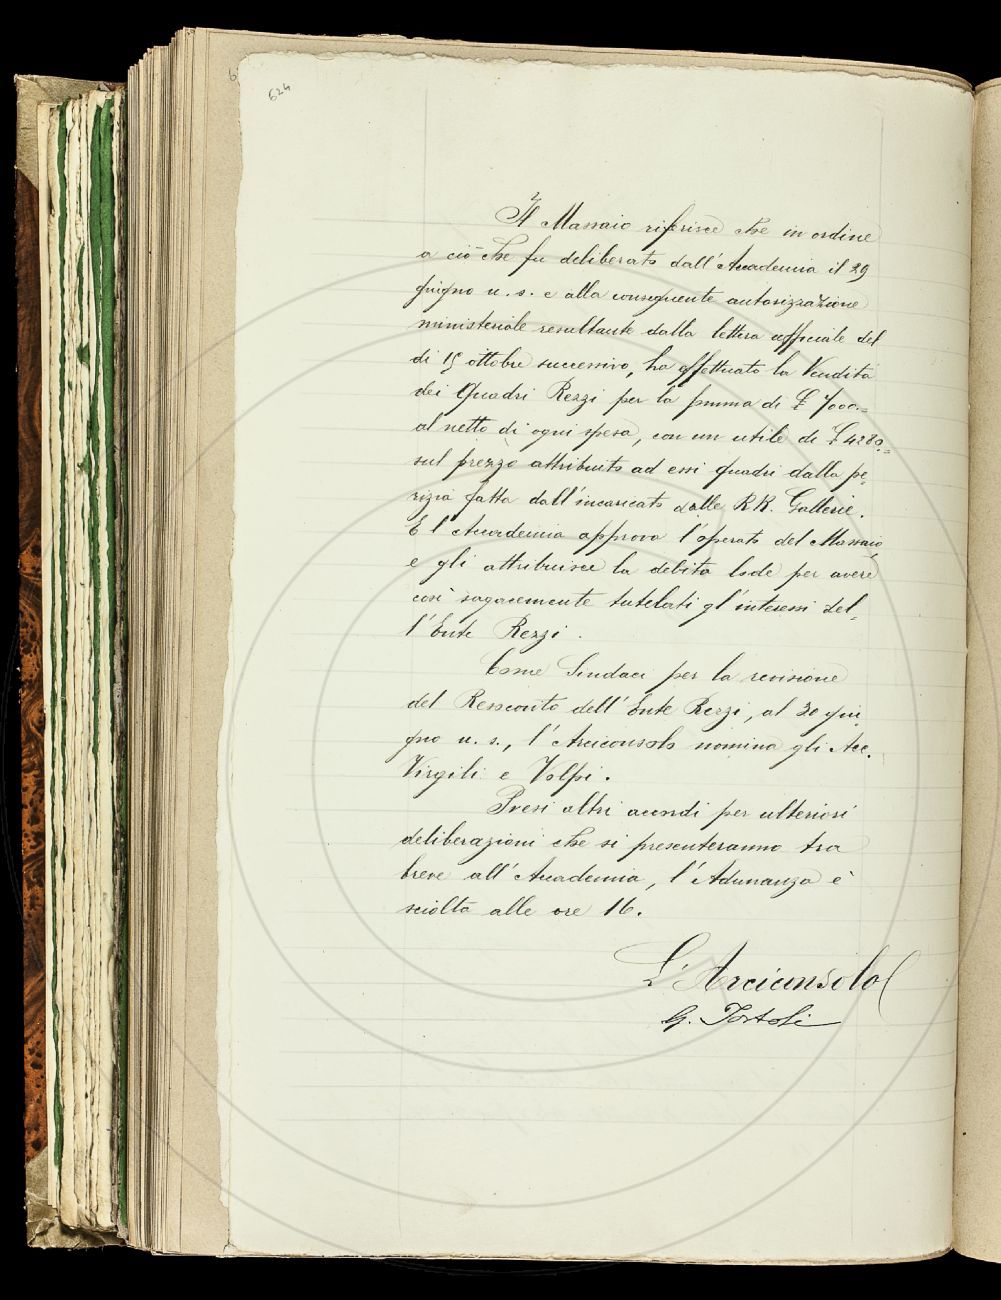 624
Il Massaio riferisce che in ordine
a ciò che fu deliberato dall'Accademia il 29
giugno u. s. e alla conseguente autorizzazione
ministeriale resultante dalla lettera officiale del
dì 15 ottobre successivo, ha effettuato la Vendita
dei Quadri Rezzi per la somma di £ 7000.=
al netto di ogni spesa, con un utile di £ 4280.=
sul prezzo attribuito ad essi quadri dalla pe-
rizia fatta dall'incaricato dalle RR. Gallerie.
E l'Accademia approva l'operato del Massaio,
e gli attribuisce la debita lode per avere
così sagacemente tutelati gl'interessi del-
l'Ente Rezzi.
Come Sindaci per la revisione
del Resoconto dell'Ente Rezzi, al 30 giu-
gno u. s., l'Arciconsolo nomina gli Acc.
Virgili e Volpi.
Presi altri accordi per ulteriori
deliberazioni che si presenteranno tra
breve all'Accademia, l'Adunanza è
sciolta alle ore 16.
L'Arciconsolo
G. Tortoli